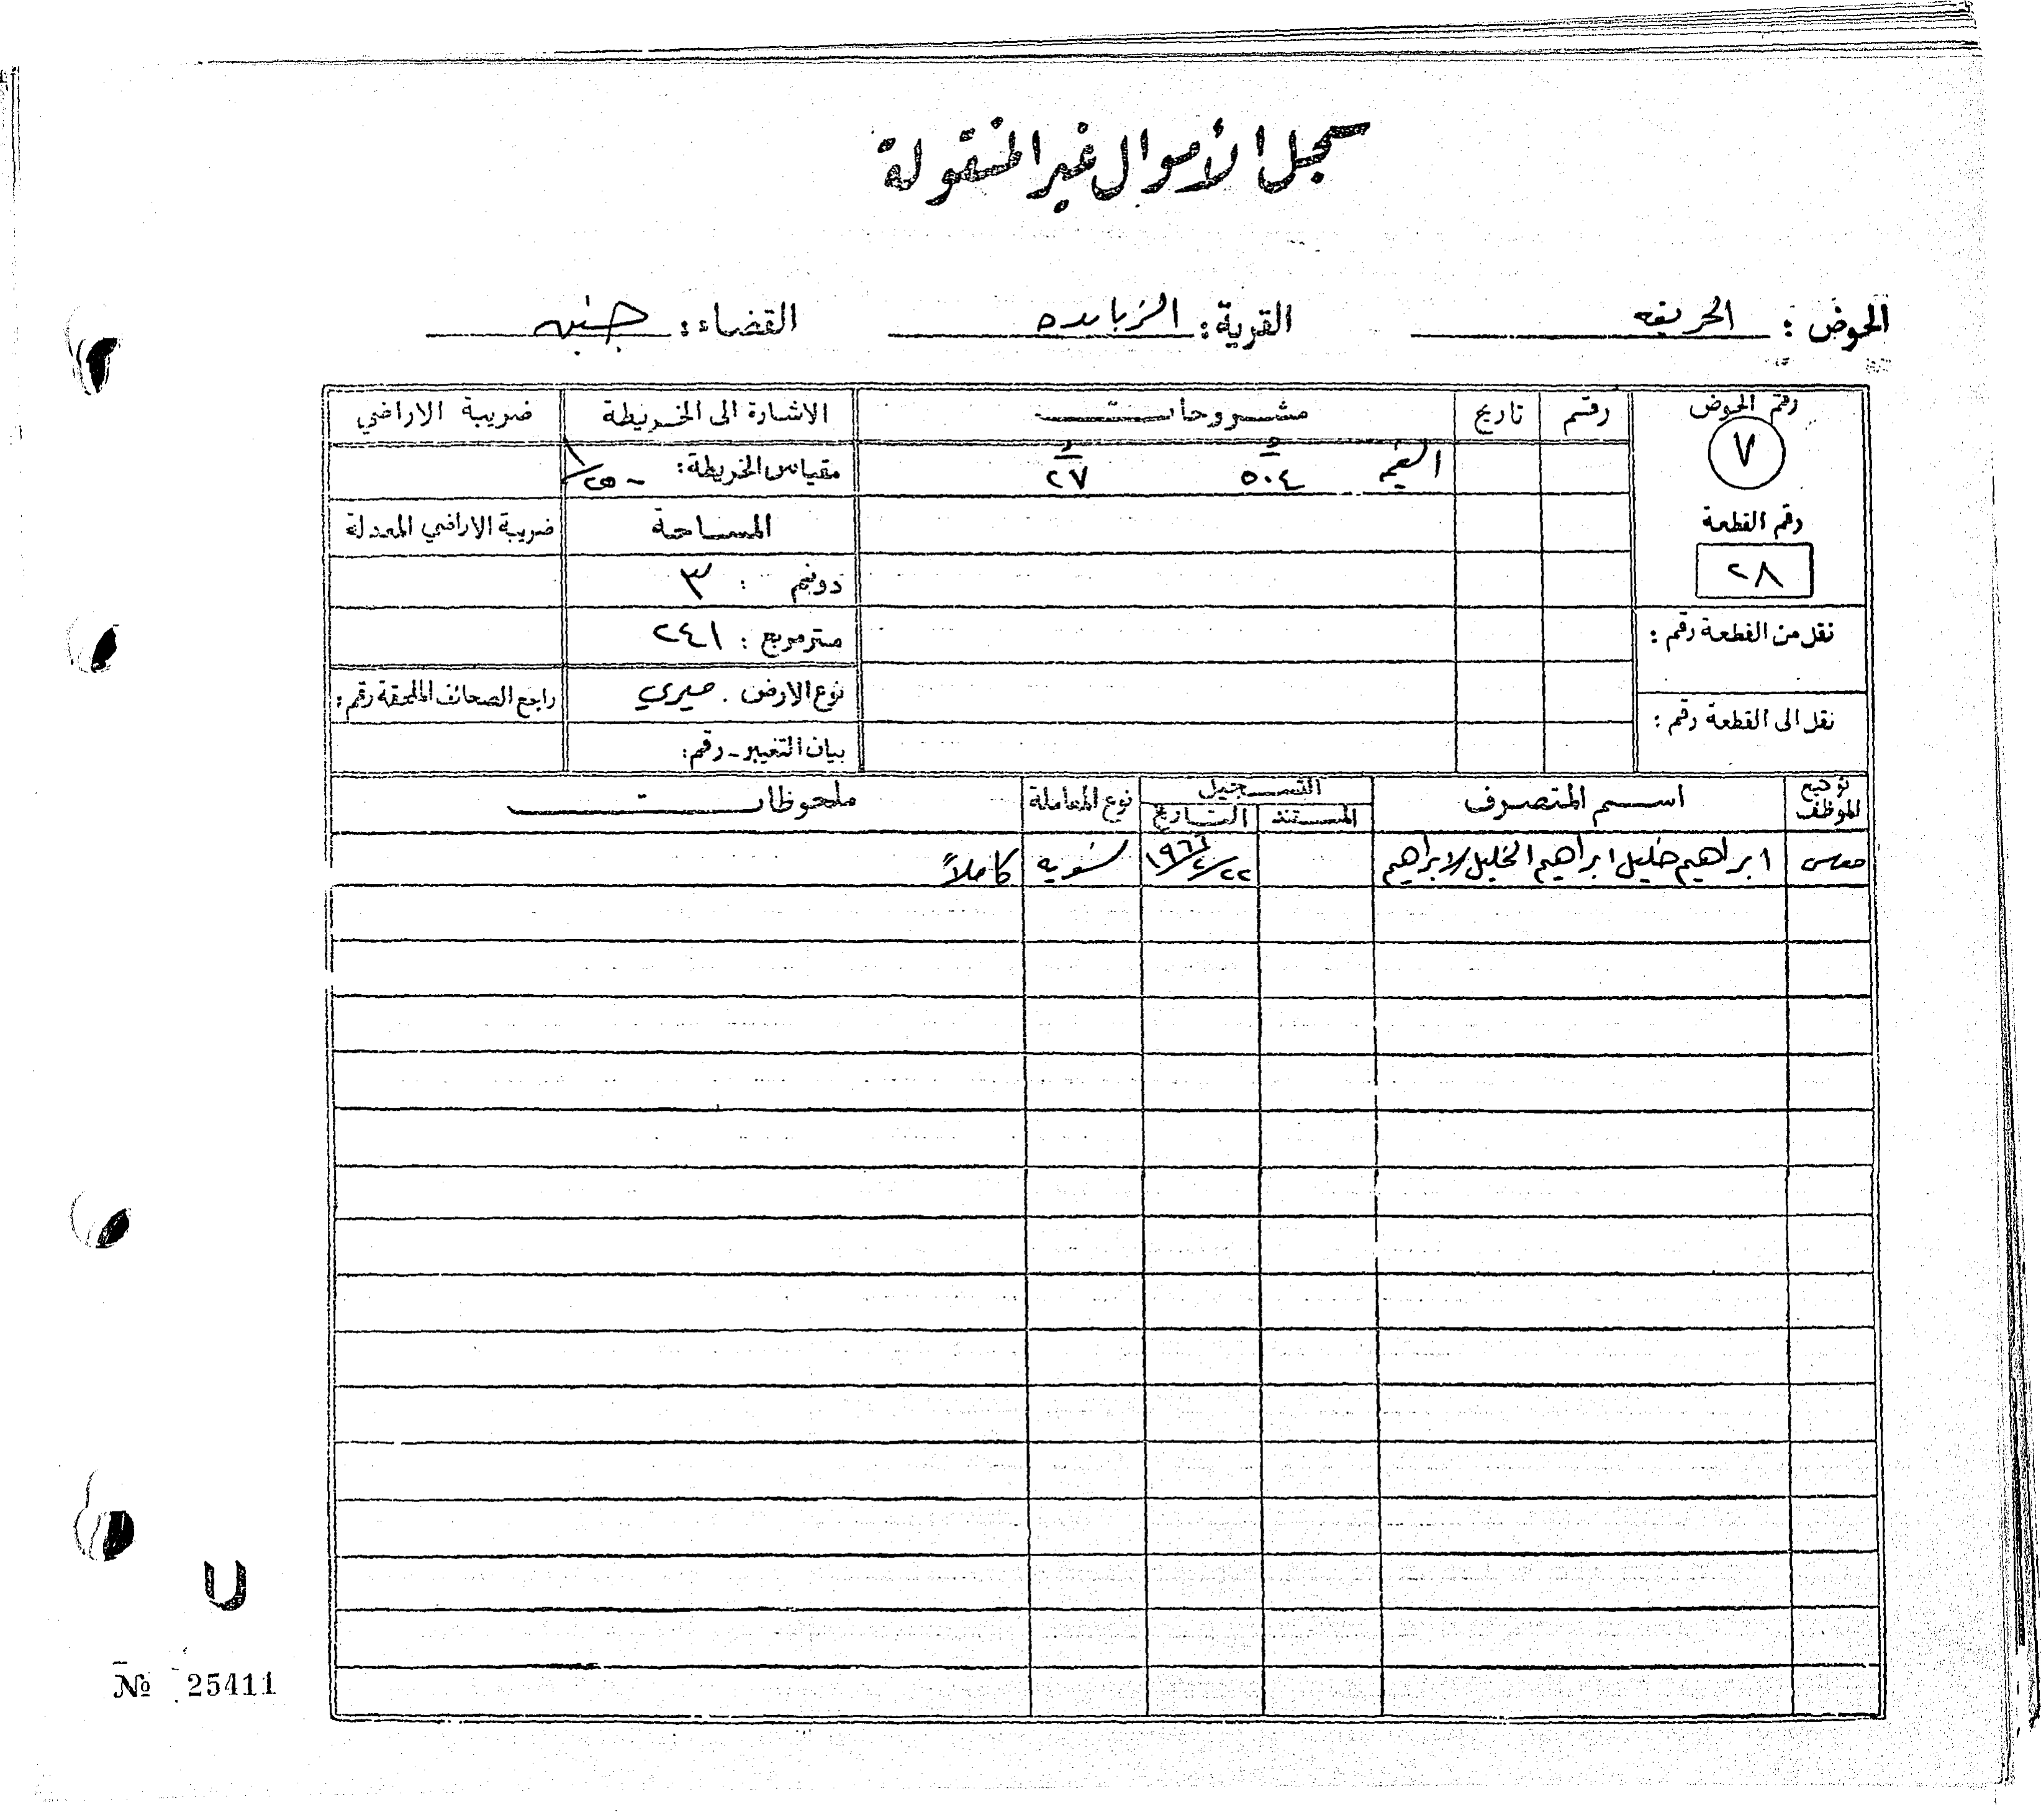 سجل الأموال غير المنقولة
الحوض : الحريقه القرية : الزبابده القضاء : جنين
رقم الحوض رقم تاريخ مشروحات الاشارة الى الخريطة ضريبة الاراضي
٧ ٥٠٤ ٢٧ مقياس الخريطة :
رقم القطعة المساحة ضريبة الاراضي المعدلة
٢٨ دونم : ٣
نقل من القطعة رقم : متر مربع : ٢٤١
نوع الارض . ميري راجع الصحائف الملحقة رقم :
نقل الى القطعة رقم : بيان التغيير - رقم :
توقيع الموظف اسم المتصرف التسجيل نوع المعاملة ملحوظات
المستند التاريخ
ابراهيم خليل ابراهيم الخليل الابراهيم تسويه كاملاً
U
№ 25411